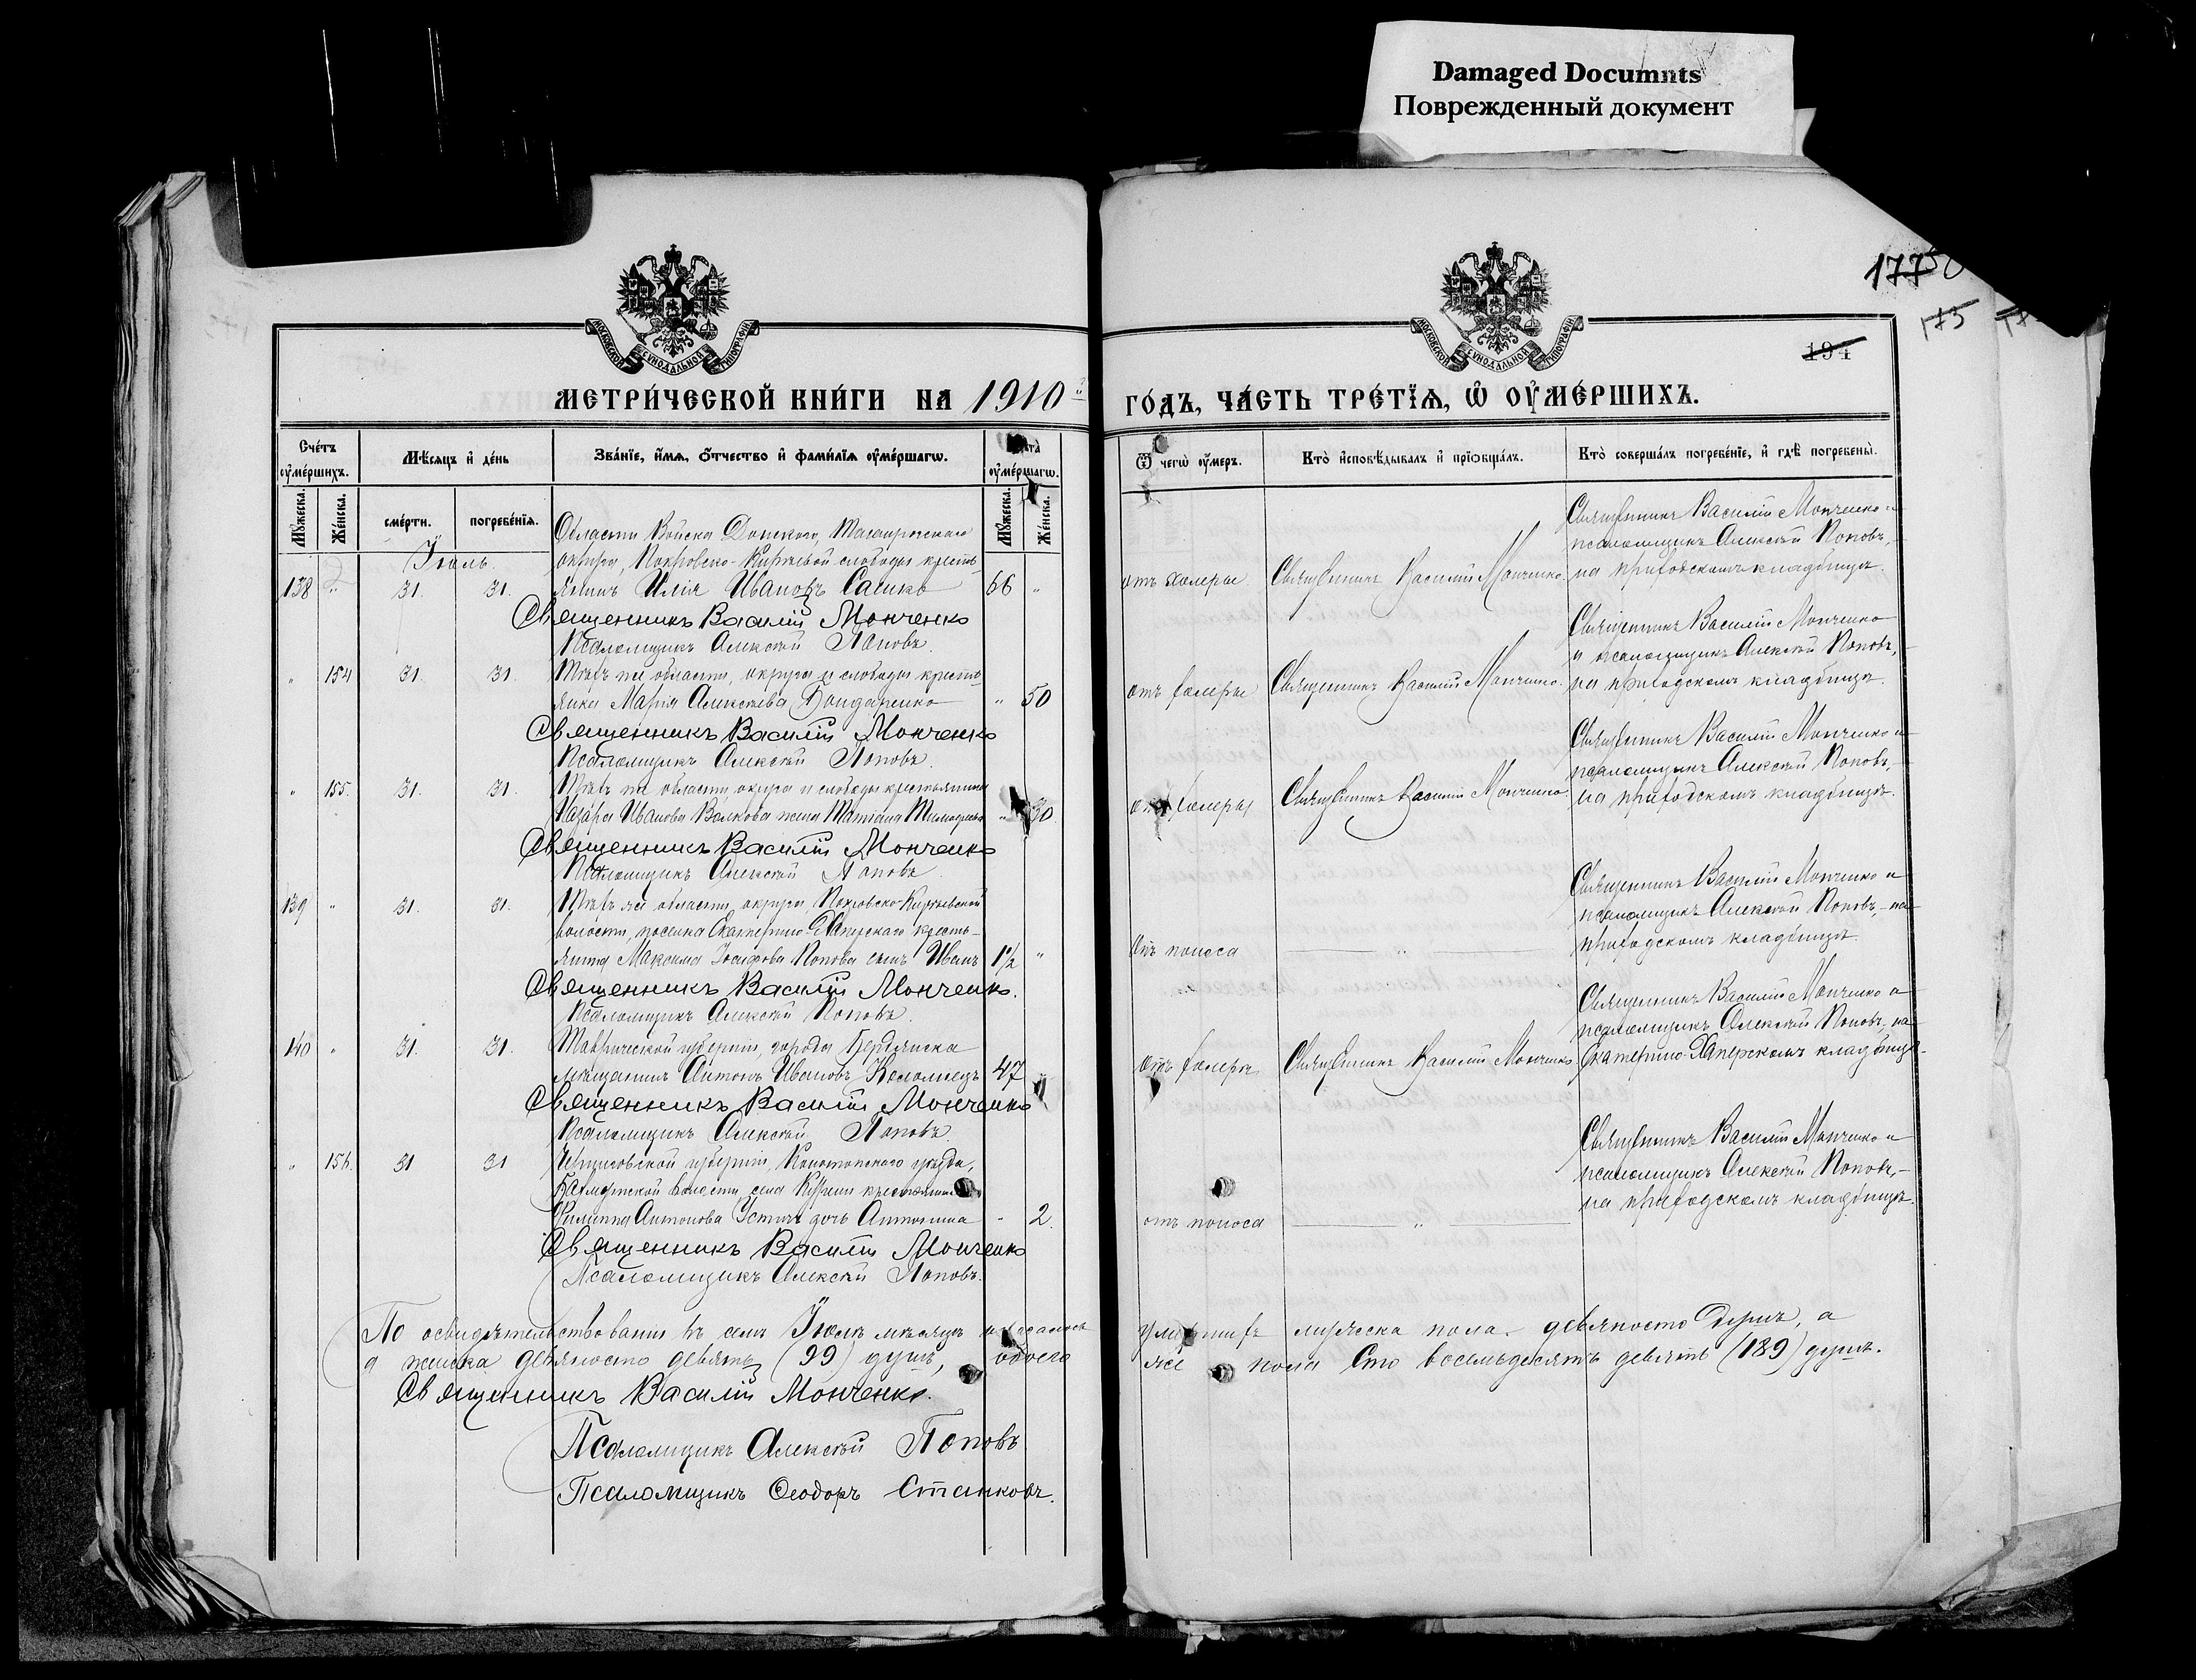 Damaged Documnts
Поврежденный документ
17750
175
194
МОСКОВСКОЙ СѴНОДАЛЬНОЙ ТИПОГРАФІИ
МОСКОВСКОЙ СѴНОДАЛЬНОЙ ТИПОГРАФІИ
МЕТРИ́ЧЕСКОЙ КНИ́ГИ НА 1910
ГО́ДЪ, ЧА́СТЬ ТРЕ́ТЇѦ, Ѡ҆ ОУ҆МЕ́РШИХЪ.
Сче́тъ оу҆ме́ршихъ.
Мѣ́сяцъ и҆ де́нь
Зва́нїе, и҆́мя, ѻ҆́тчество и҆ фами́лїя оу҆ме́ршагѡ.
Лѣта̀ оу҆ме́ршагѡ.
Мꙋ́жеска.
Же́нска.
сме́рти.
погребе́нїя.
Мꙋ́жеска.
Же́нска.
Ѿ чегѡ̀ оу҆́меръ.
Кто̀ и҆сповѣ́дывалъ и҆ прїѡбща́лъ.
Кто̀ соверша́лъ погребе́нїе, и҆ гдѣ̀ погребены̀.
Іюль.
Области Войска Донского, Таганрогскаго
округа, Покровско-Киреевой слободы кресть-
138 " 31. 31. янинъ Илія Ивановъ Сашко 66 "
Священникъ Василій Монченко
Псаломщикъ Алексѣй Поповъ.
отъ холеры Священникъ Василій Монченко.
Священникъ Василій Монченко и
псаломщикъ Алексѣй Поповъ,-
на приходскомъ кладбищѣ.
" 154 31. 31. Той же области, округа и слободы кресть-
янка Марія Алексѣева Бондаренко " 50
Священникъ Василій Монченко
Псаломщикъ Алексѣй Поповъ.
отъ холеры Священникъ Василій Монченко.
Священникъ Василій Монченко
и псаломщикъ Алексѣй Поповъ,-
на приходскомъ кладбищѣ.
" 155. 31. 31. Той же области округа и слободы крестьянина
Назара Иванова Волкова жена Татіана " 30.
Священникъ Василій Монченко
Псаломщикъ Алексѣй Поповъ.
отъ холеры Священникъ Василій Монченко
Священникъ Василій Монченко и
псаломщикъ Алексѣй Поповъ,-
на приходскомъ кладбищѣ.
139 " 31. 31. Той же области, округа, Покровско-Киреевской
волости, поселка Екатерино-Хаперскаго кресть-
янина Максима Іосифова Попова сынъ Иванъ 1½ "
Священникъ Василій Монченко.
Псаломщикъ Алексѣй Поповъ.
отъ поноса "
Священникъ Василій Монченко и
псаломщикъ Алексѣй Поповъ,- на
приходскомъ кладбищѣ.
140 " 31. 31. Таврической губерніи, города Бердянска
мѣщанинъ Антонъ Ивановъ Коломіецъ 47 "
Священникъ Василій Монченко
Псаломщикъ Алексѣй Поповъ.
отъ холеры Священникъ Василій Монченко
Священникъ Василій Монченко и
псаломщикъ Алексѣй Поповъ, на
Екатерино-Хаперскомъ кладбищѣ.
" 156. 31 31 Черниговской губерніи, Конотопскаго уѣзда,
волости, села крестьянина
Филиппа Антонова дочь Антонина " 2.
Священникъ Василій Монченко
Псаломщикъ Алексѣй Поповъ.
отъ поноса "
Священникъ Василій Монченко и
псаломщикъ Алексѣй Поповъ,-
на приходскомъ кладбищѣ.
По освидѣтельствованіи въ семъ Іюлѣ мѣсяцѣ оказалось умершихъ мужеска пола девяносто душъ, а
а женска девяносто девять (99) душъ, обоего же пола сто восемьдесятъ девять (189) душъ.
Священникъ Василій Монченко.
Псаломщикъ Алексѣй Поповъ
Псаломщикъ Ѳеодоръ Станковъ.